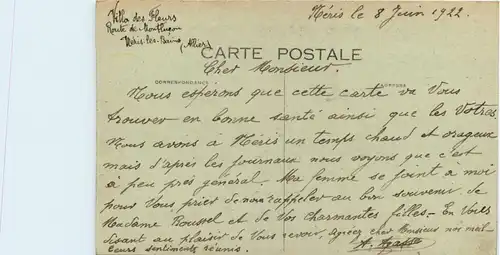 Villa des Fleurs
Route de Montluçon
Néris-les-Bains
(Allier)
Néris le 8 Juin 1922.
CARTE POSTALE
CORRESPONDANCE
Cher Monsieur.
Nous esperons que cette carte va Vous
trouver en bonne santé ainsi que les Votres.
Nous avons à Néris un temps chaud et orageux
mais d'après les journaux nous voyons que c'est
à peu près général. Ma femme se joint à moi
pour Vous prier de nous rappeler au bon souvenir de
Madame Roussel et de Vos Charmantes filles - En Vous
disant au plaisir de Vous revoir, agréez cher Monsieur nos meil-
leurs sentiments réunis.